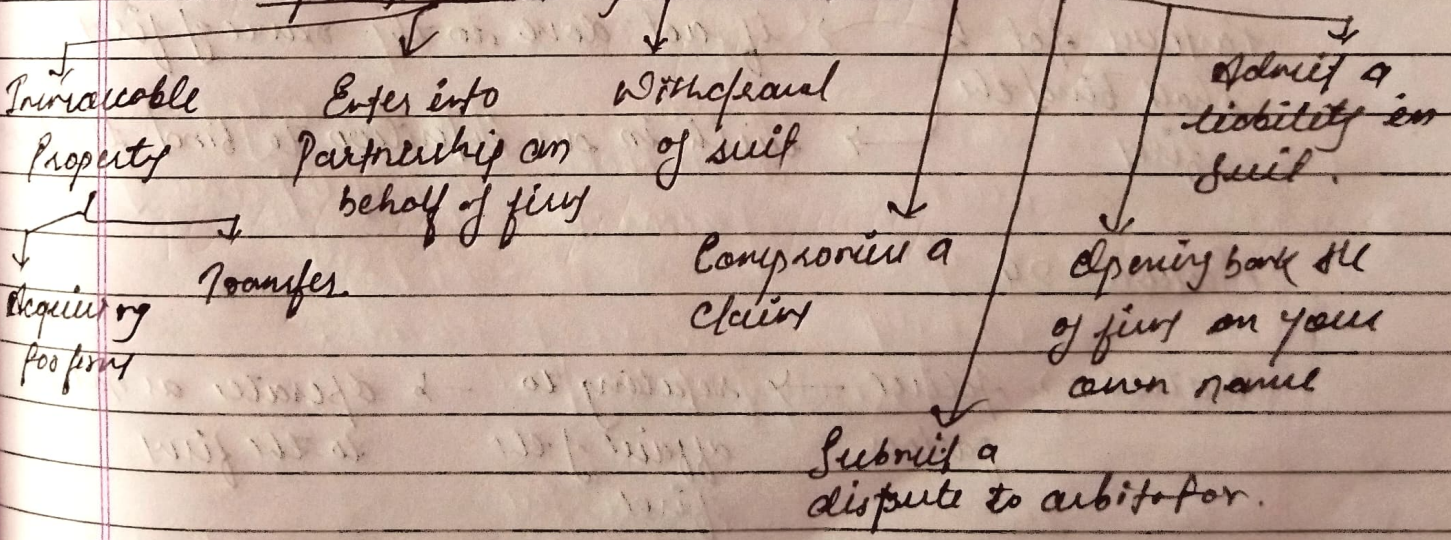 Immovable
Property
Acquiring
for firm
Transfer.
Enter into
Partnership on
behalf of firm
Withdrawal
of suit
Compromise a
claim
Submit a
dispute to arbitrator.
Opening bank A/c
of firm on your
own name
Admit a
liability in
suit.